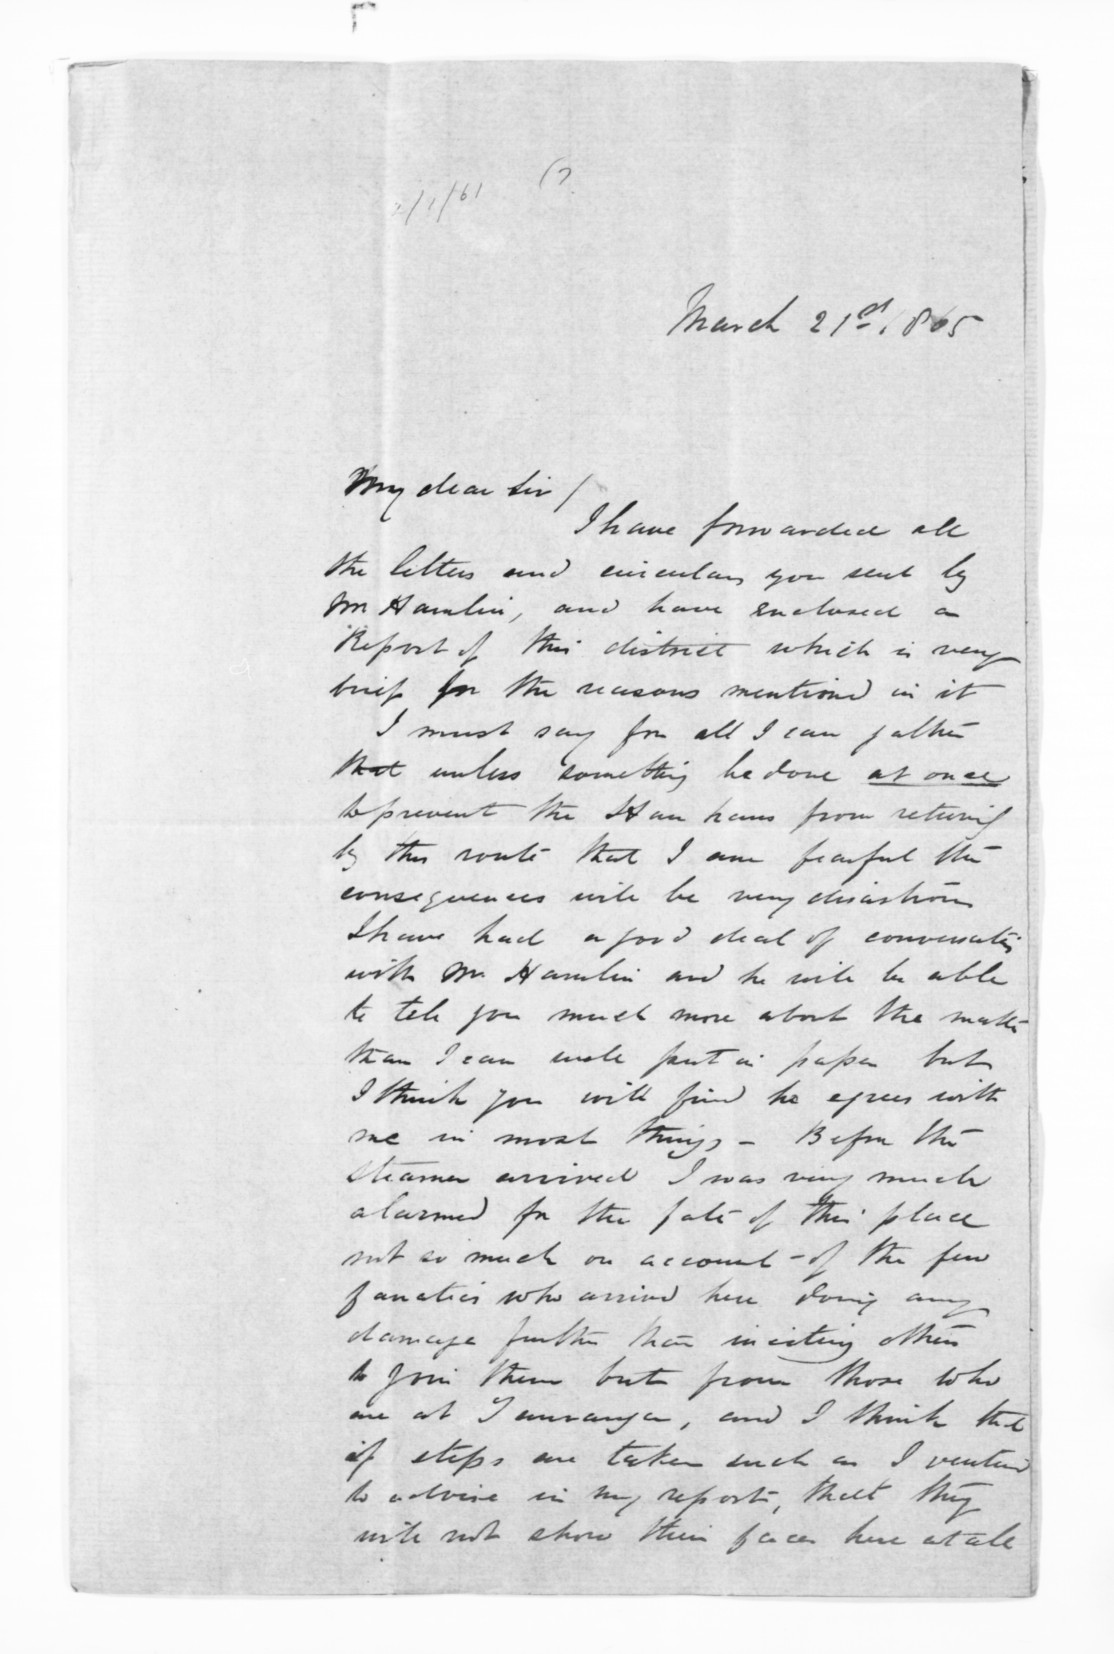 2/1/61 (7
March 21st, 1865
My dear Sir /
I have forwarded all
the letters and circulars you sent by
Mr Hamlin, and have enclosed a
Report of this district which is very
brief for the reasons mentioned in it
I must say for all I can gather
that unless something be done at once
to prevent the Hau haus from returning
by this route that I am fearful the
consequences will be very disastrous
I have had a good deal of conversation
with Mr Hamlin and he will be able
to tell you much more about the matter
than I can well put on paper but
I think you will find he agrees with
me in most things - Before the
steamer arrived I was very much
alarmed for the fate of this place
not so much on account of the few
fanatics who arrived here doing any
damage further than inciting others
to join them but from those who
are at Tauranga, and I think that
if steps are taken such as I ventured
to advise in my report, that they
will not show their faces here at all